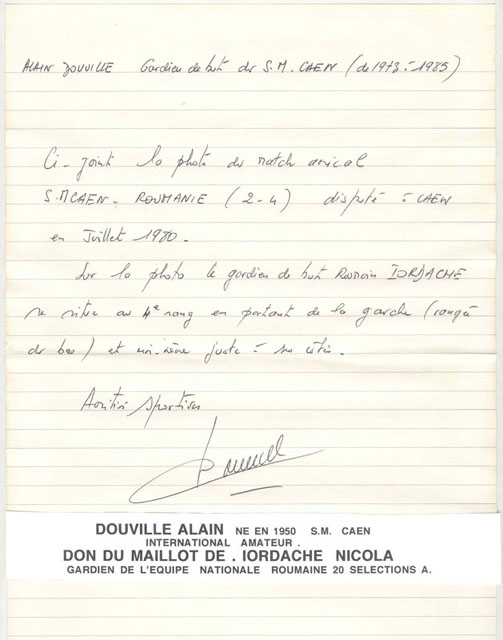 ALAIN DOUVILLE Gardien de but du S.M. CAEN (de 1973 à 1985)
Ci-joint la photo du match amical
S.M CAEN - ROUMANIE (2-4) disputé à CAEN
en Juillet 1980.
Sur la photo le gardien de but Roumain IORDACHE
se situe au 4e rang en partant de la gauche (rangée
du bas) et moi-même juste à ses côtés.
Amitiés Sportives
DOUVILLE ALAIN NE EN 1950 S.M. CAEN
INTERNATIONAL AMATEUR .
DON DU MAILLOT DE . IORDACHE NICOLA
GARDIEN DE L'EQUIPE NATIONALE ROUMAINE 20 SELECTIONS A.